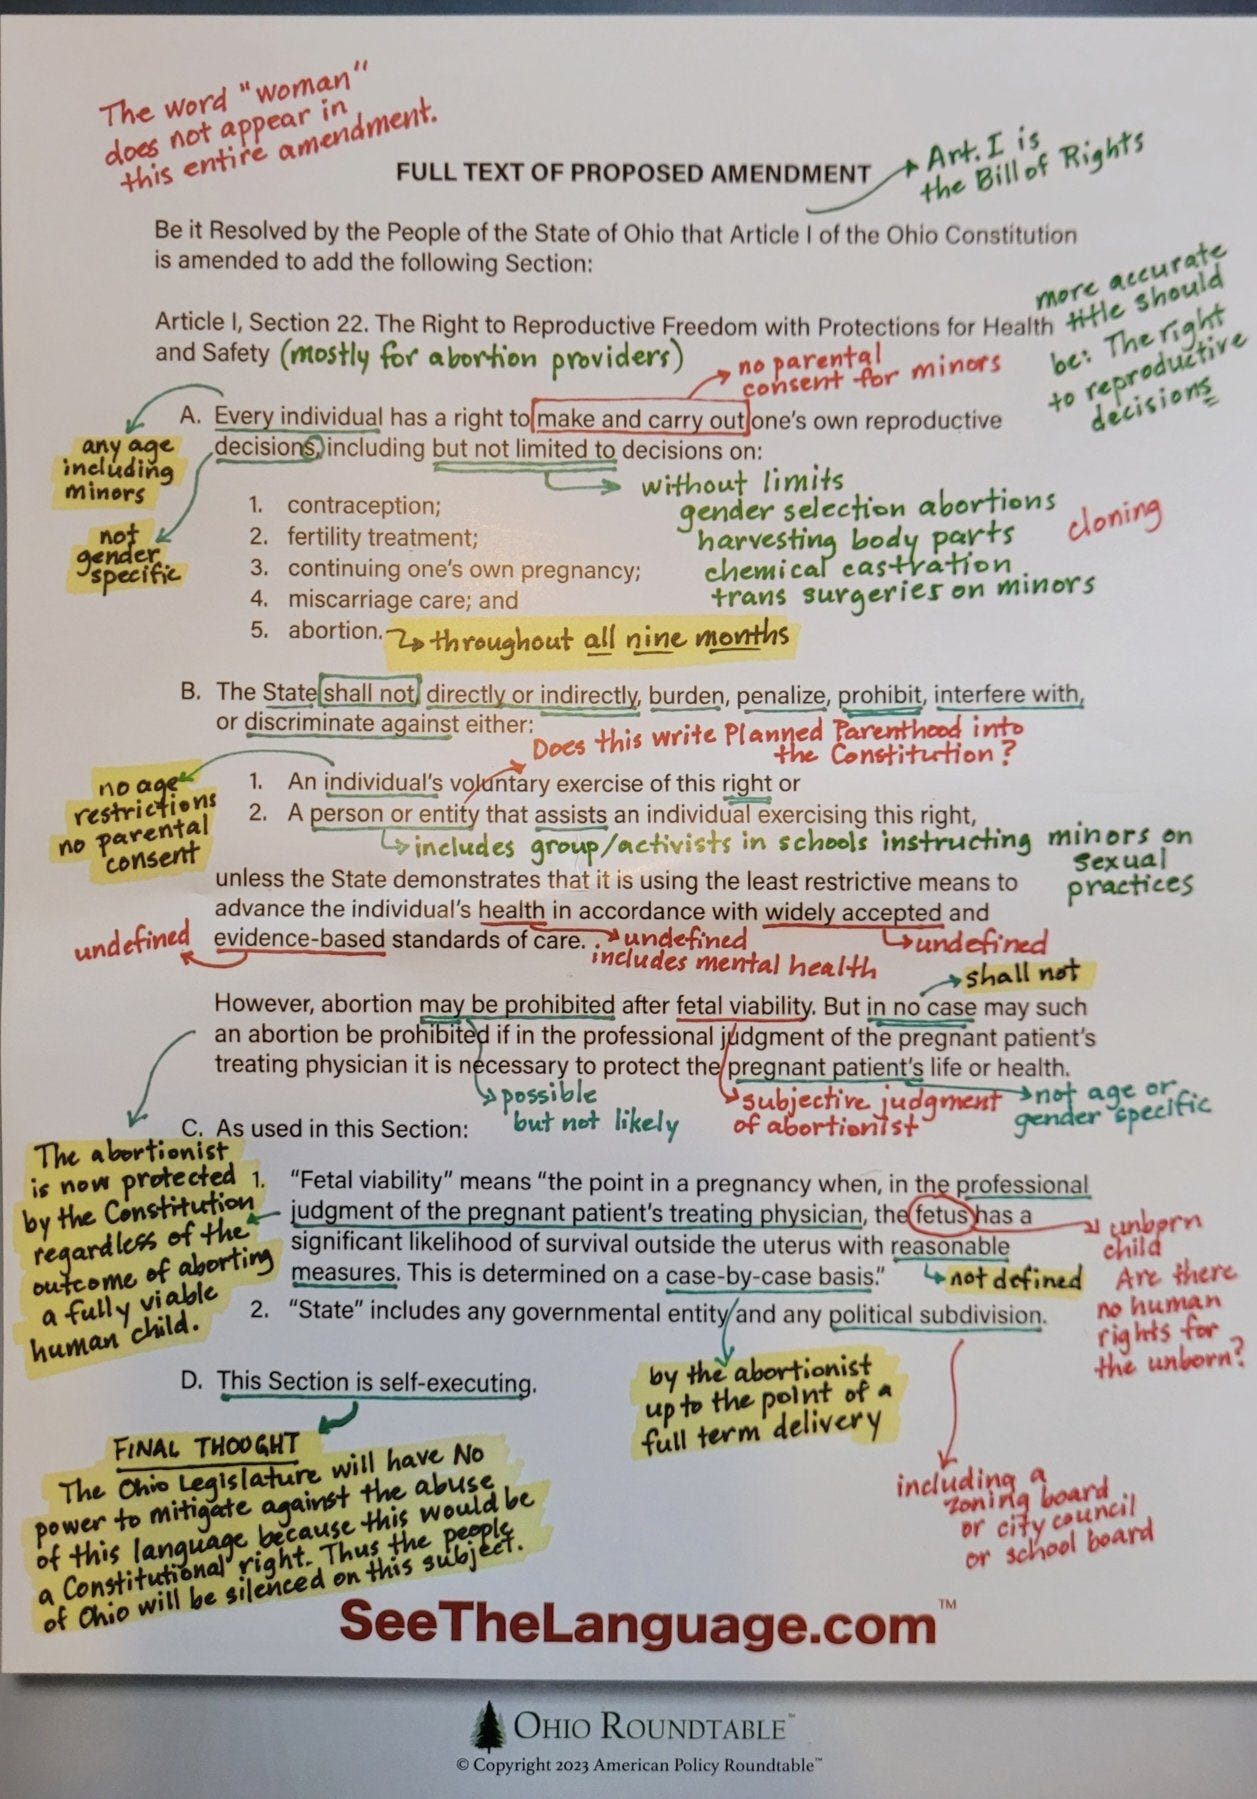 The word "woman"
does not appear in
this entire amendment.
FULL TEXT OF PROPOSED AMENDMENT
Art. I is
the Bill of Rights
Be it Resolved by the People of the State of Ohio that Article I of the Ohio Constitution
is amended to add the following Section:
more accurate
title should
be: The right
to reproductive
decisions
Article I, Section 22. The Right to Reproductive Freedom with Protections for Health
and Safety (mostly for abortion providers)
no parental
consent for minors
A. Every individual has a right to make and carry out one's own reproductive
decisions, including but not limited to decisions on:
any age
including
minors
not
gender
specific
without limits
gender selection abortions
harvesting body parts
chemical castration
trans surgeries on minors
cloning
1. contraception;
2. fertility treatment;
3. continuing one's own pregnancy;
4. miscarriage care; and
5. abortion.
throughout all nine months
B. The State shall not, directly or indirectly, burden, penalize, prohibit, interfere with,
or discriminate against either:
Does this write Planned Parenthood into
the Constitution?
no age
restrictions
no parental
consent
1. An individual's voluntary exercise of this right or
2. A person or entity that assists an individual exercising this right,
includes group/activists in schools instructing minors on
sexual
practices
unless the State demonstrates that it is using the least restrictive means to
advance the individual's health in accordance with widely accepted and
evidence-based standards of care.
undefined
undefined
includes mental health
undefined
shall not
However, abortion may be prohibited after fetal viability. But in no case may such
an abortion be prohibited if in the professional judgment of the pregnant patient's
treating physician it is necessary to protect the pregnant patient's life or health.
possible
but not likely
subjective judgment
of abortionist
not age or
gender specific
C. As used in this Section:
The abortionist
is now protected
by the Constitution
regardless of the
outcome of aborting
a fully viable
human child.
1. "Fetal viability" means "the point in a pregnancy when, in the professional
judgment of the pregnant patient's treating physician, the fetus has a
significant likelihood of survival outside the uterus with reasonable
measures. This is determined on a case-by-case basis."
not defined
unborn
child
Are there
no human
rights for
the unborn?
2. "State" includes any governmental entity and any political subdivision.
by the abortionist
up to the point of a
full term delivery
including a
zoning board
or city council
or school board
D. This Section is self-executing.
FINAL THOUGHT
The Ohio Legislature will have No
power to mitigate against the abuse
of this language because this would be
a Constitutional right. Thus the people
of Ohio will be silenced on this subject.
SeeTheLanguage.com™
OHIO ROUNDTABLE™
© Copyright 2023 American Policy Roundtable™